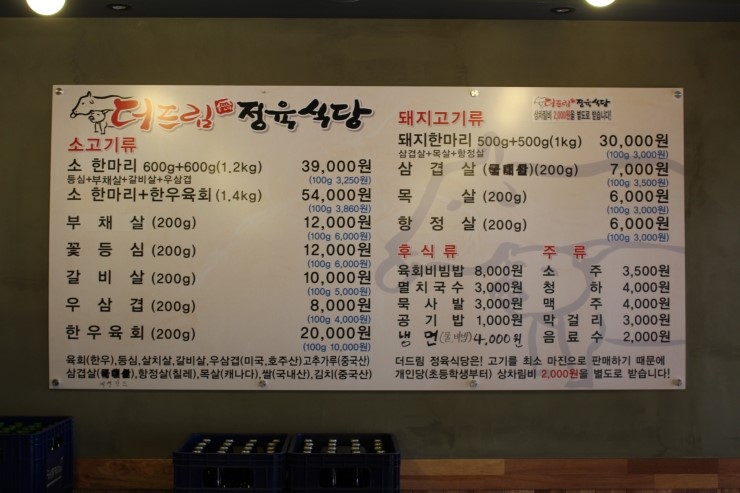 더드림 정육식당
소고기류
소 한마리 600g+600g(1.2kg) 39,000원
등심+부채살+갈비살+우삼겹 (100g 3,250원)
소 한마리+한우육회(1.4kg) 54,000원
(100g 3,860원)
부채살(200g) 12,000원
(100g 6,000원)
꽃등심(200g) 12,000원
(100g 6,000원)
갈비살(200g) 10,000원
(100g 5,000원)
우삼겹(200g) 8,000원
(100g 4,000원)
한우육회(200g) 20,000원
(100g 10,000원)
육회(한우),등심,살치살,갈비살,우삼겹(미국,호주산)고추가루(중국산)
삼겹살( ),항정살(칠레),목살(캐나다),쌀(국내산),김치(중국산)
더드림 정육식당
상차림비 2,000원을 별도로 받습니다!
돼지고기류
돼지한마리 500g+500g(1kg) 30,000원
삼겹살+목살+항정살 (100g 3,000원)
삼겹살( )(200g) 7,000원
(100g 3,500원)
목살(200g) 6,000원
(100g 3,000원)
항정살(200g) 6,000원
(100g 3,000원)
후식류
육회비빔밥 8,000원
멸치국수 3,000원
묵사발 3,000원
공기밥 1,000원
냉면 4,000원
주류
소주 3,500원
청하 4,000원
맥주 4,000원
막걸리 3,000원
음료수 2,000원
더드림 정육식당은! 고기를 최소 마진으로 판매하기 때문에
개인당(초등학생부터) 상차림비 2,000원을 별도로 받습니다!